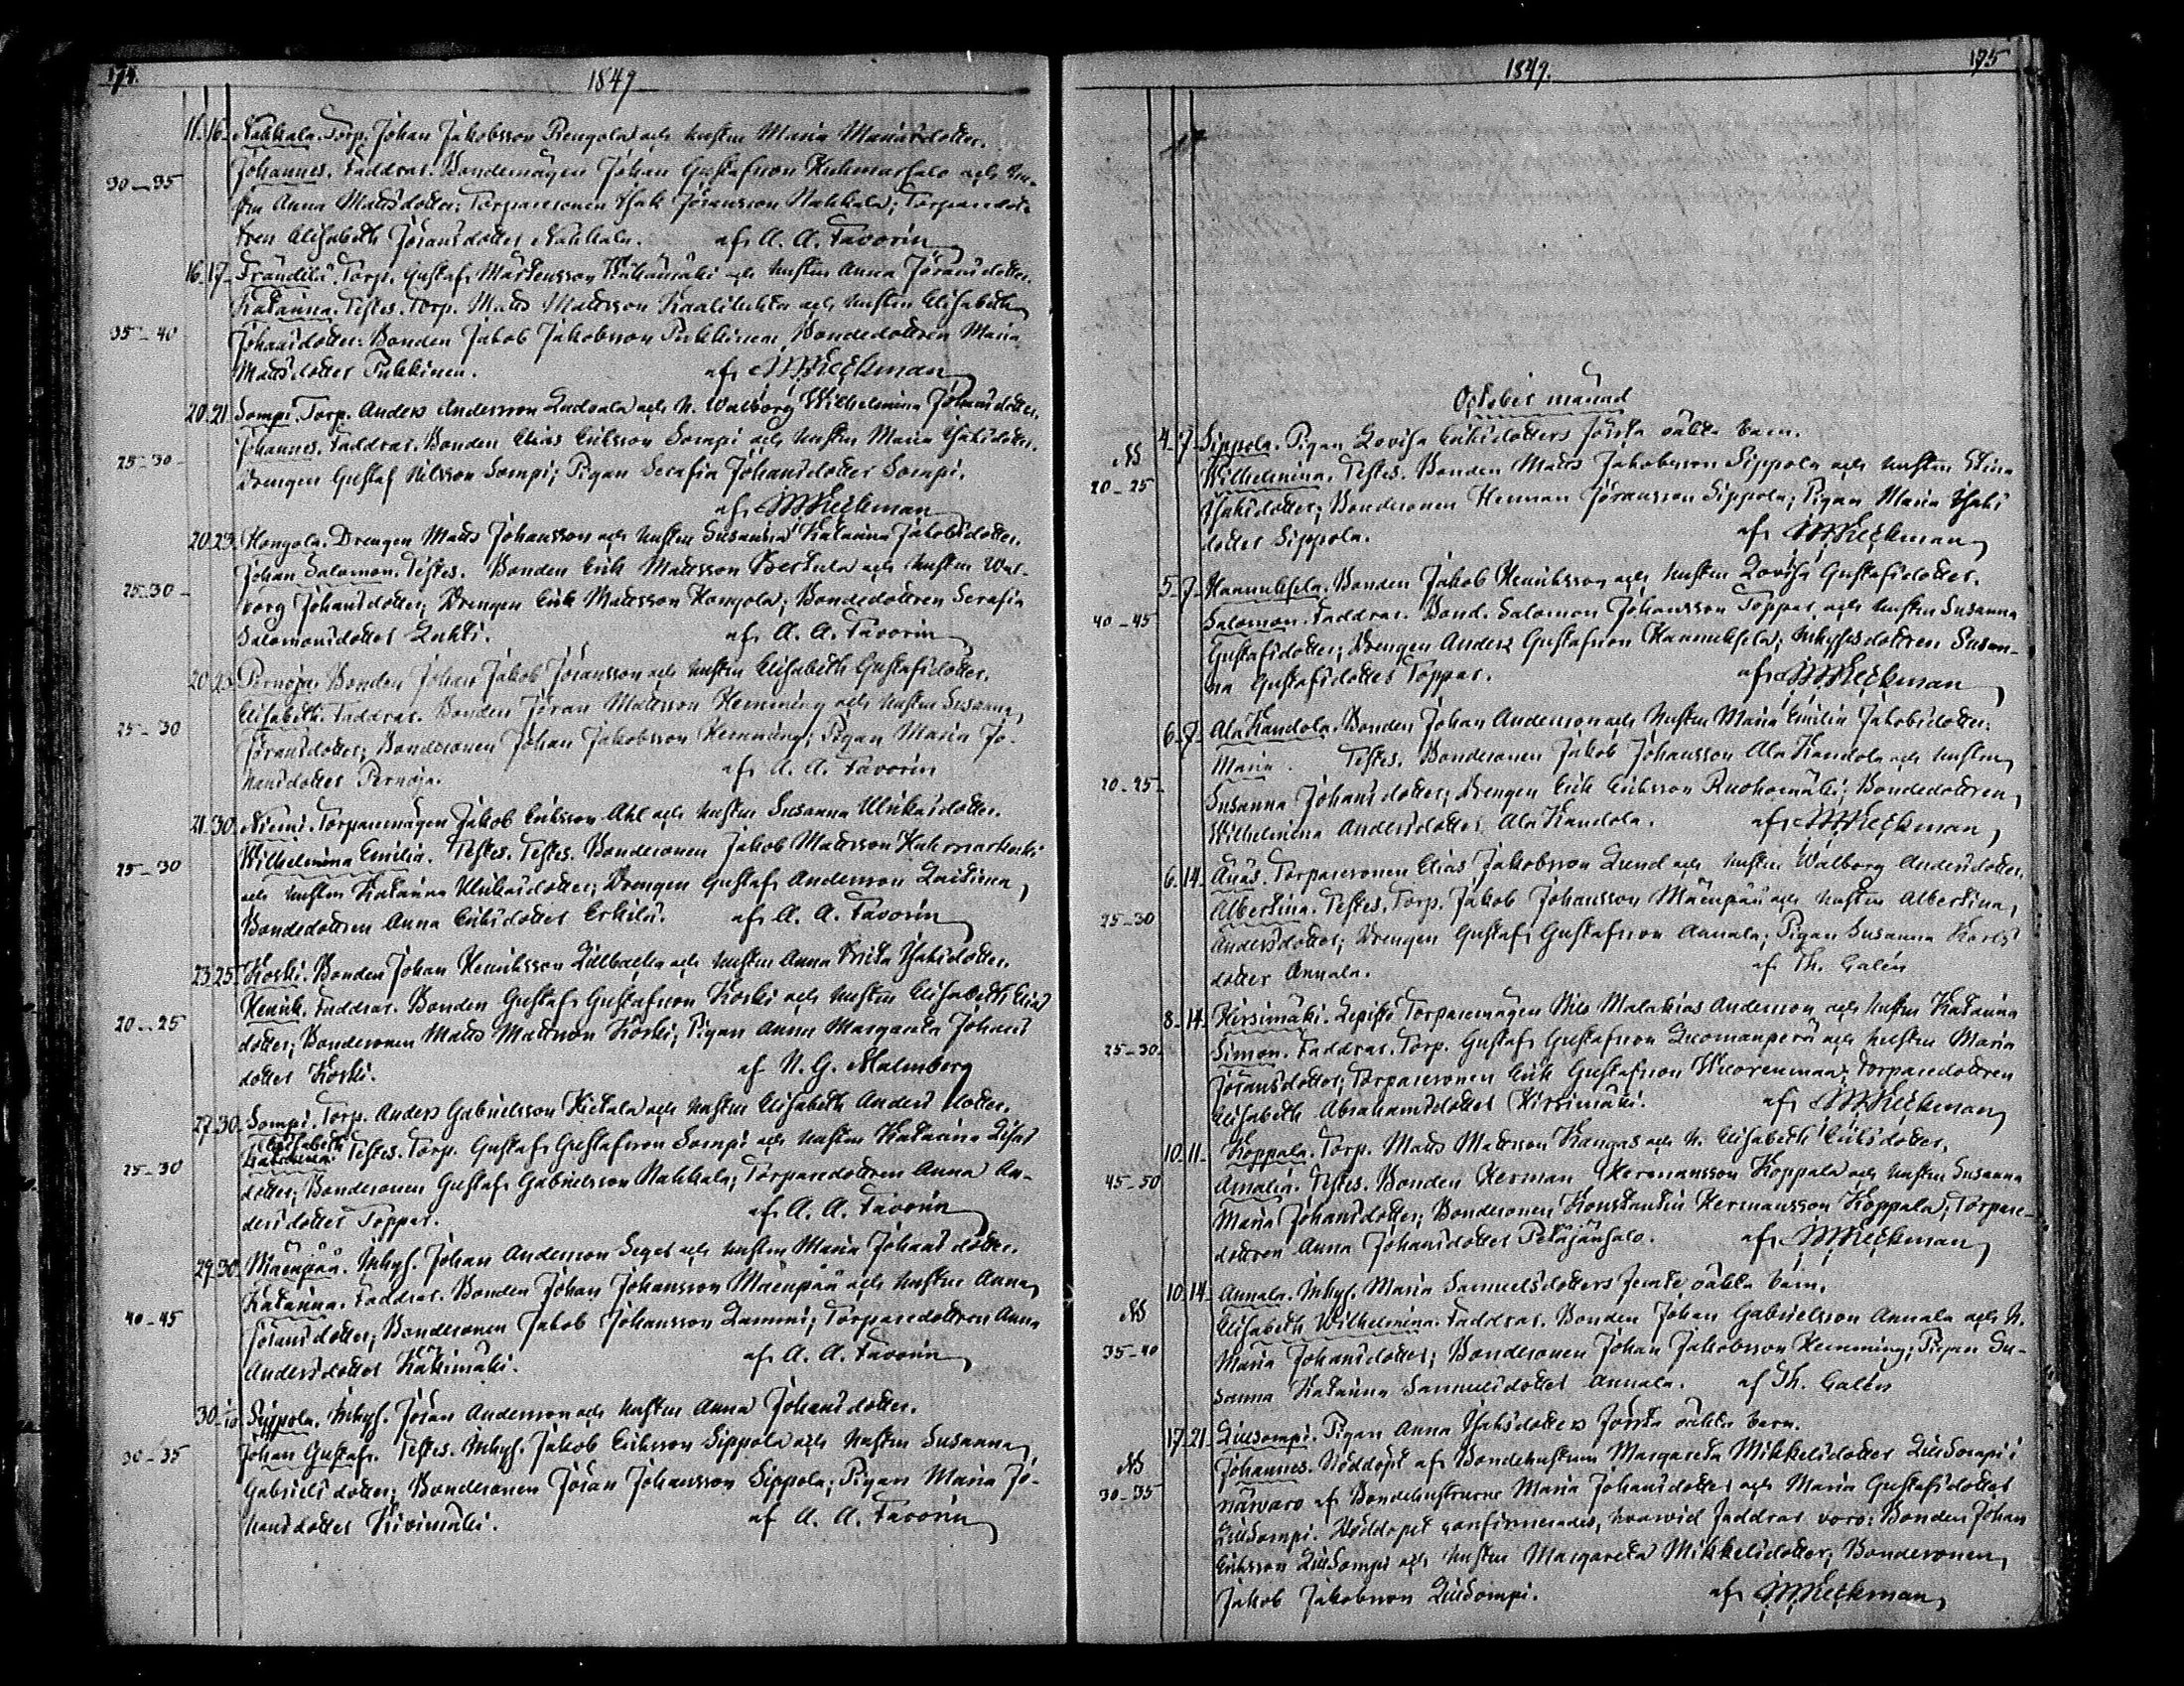 174.
1849
11. 16. Nahkala. Torp. Johan Jakobsson Rengola och hustru Maria Mariasdotter.
Johannes. Faddrar. Bondemågen Johan Gustafsson Kuhmasalo och hu-
30-35
stru Anna Mattsdotter; Torparesonen Isak Göransson Nahkala; Torparedot-
tren Elisabeth Göransdotter Nahkala. af A. A. Favorin
16. 17. Frändilä. Torp. Gustaf Mårtensson Wähämäki och hustru Anna Göransdotter.
Katarina. Testes. Torp. Matts Mattsson Kaalilahti och hustru Elisabeth
35-40
Johansdotter; Bonden Jakob Jakobsson Pukkinen, Bondedottren Maria
Mattsdotter Pukkinen. af M. Keckman
20. 21. Sompi. Torp. Anders Andersson Ladvala och h. Walborg Wilhelmina Johansdotter.
Johannes. Faddrar. Bonden Elias Eriksson Sompi och hustru Maria Isaksdotter.
25-30
Drengen Gustaf Nilsson Sompi; Pigan Serafia Johansdotter Sompi.
af M. Keckman
20. 23. Hongola. Drengen Matts Johansson och hustru Susanna Katarina Jakobsdotter.
Johan Salomon. Testes. Bonden Erik Mattsson Bertula och hustru Wal-
25-30
borg Johansdotter; Drengen Erik Mattsson Hongola; Bondedottren Serafia
Salomonsdotter Lahti. af A. A. Favorin
20. 23. Pernoja. Bonden Johan Jakob Göransson och hustru Elisabeth Gustafsdotter.
Elisabeth. Faddrar. Bonden Göran Mattsson Hemming och hustru Susanna
25-30
Göransdotter; Bondesonen Johan Jakobsson Hemming; Pigan Maria Jo-
hansdotter Pernoja. af A. A. Favorin
21. 30. Niemi. Torparemågen Jakob Eriksson Ahl och hustru Susanna Ulrikasdotter.
Wilhelmina Emilia. Testes. Testes. Bondesonen Jakob Mattsson
25-30
och hustru Katarina Ulrikasdotter; Drengen Gustaf Andersson Laitinen,
Bondedottren Anna Eriksdotter Erkilä. af A. A. Favorin
23. 25. Koski. Bonden Johan Henriksson Lillbacka och hustru Anna Brita Isaksdotter.
Henrik. Faddrar. Bonden Gustaf Gustafsson Koski och hustru Elisabeth Elias
20-25
dotter; Bondesonen Matts Mattsson Koski; Pigan Anna Margareta Johans
dotter Koski. af N. G. Malmberg
27. 30. Sompi. Torp. Anders Gabrielsson Kietala och hustru Elisabeth Anders dotter.
Elisabeth
Katarina. Testes. Torp. Gustaf Gustafsson Sompi och hustru Katarina Lisas
25-30
dotter; Bondesonen Gustaf Gabrielsson Nahkala; Torparedottren Anna An-
dersdotter Toppar. af A. A. Favorin
29. 30. Mäenpää. Inhys. Johan Andersson Seger och hustru Maria Johans dotter.
Katarina. Faddrar. Bonden Johan Johansson Mäenpää och hustru Anna
40-45
Göransdotter; Bondesonen Jakob Johansson Lammi; Torparedottren Anna
Andersdotter Kattimäki. af A. A. Favorin
30. 10 Sippola. Inhys. Göran Andersson och hustru Anna Johansdotter.
Johan Gustaf. Testes. Inhys. Jakob Eriksson Sippola och hustru Susanna
30-35
Gabrielsdotter; Bondesonen Göran Johansson Sippola; Pigan Maria Jo-
hansdotter Kivimäki. af A. A. Favorin
175
1849.
October månad
4. 7. Sippola. Pigan Lovisa Eriksdotters första oäkta barn.
NB
Wilhelmina. Testes. Bonden Matts Jakobsson Sippola och hustru Stina
20-25
Isaksdotter; Bondesonen Herman Göransson Sippola; Pigan Maria Isaks
dotter Sippola. af M. Keckman
5. 7. Haanukselä. Bonden Jakob Henriksson och hustru Lovisa Gustafsdotter.
40-45
Salomon. Faddrar. Bond. Salomon Johansson Toppar och hustru Susanna
Gustafsdotter; Drengen Anders Gustafsson Haanukselä; Inhysesdottren Susan-
na Gustafsdotter Toppar. af M. Keckman
6. 7. Ala Kandola. Bonden Johan Andersson och hustru Maria Emilia Jakobsdotter.
Maria. Testes. Bondesonen Jakob Johansson Ala Kandola och hustru
20-25
Susanna Johansdotter; Drengen Erik Eriksson Ruohomäki; Bondedottren
Wilhelmina Andersdotter Ala Kandola. af M. Keckman
6. 14. Ånäs. Torparesonen Elias Jakobsson Lund och hustru Walborg Andersdotter.
Albertina. Testes. Torp. Jakob Johansson Mäenpää och hustru Albertina
25-30
Andersdotter; Drengen Gustaf Gustafsson Annala; Pigan Susanna Karls
dotter Annala. af Th. Galén
8. 14. Hirsimäki. Lepistö Torparemågen Nils Malakias Andersson och hustru Katarina
25-30
Simon. Faddrar. Torp. Gustaf Gustafsson Luomanperä och hustru Maria
Göransdotter; Torparesonen Erik Gustafsson Wuorenmaa; Torparedottren
Elisabeth Abrahamsdotter Hirsimäki. af M. Keckman
10. 11. Koppala. Torp. Matts Mattsson Kangas och h. Elisabeth Eriksdotter.
45-50
Amalia. Testes. Bonden Herman Hermansson Koppala och hustru Susanna
Maria Johansdotter; Bondesonen Konstantin Hermansson Koppala; Torpare-
dottren Anna Johansdotter Petäjänsalo. af M. Keckman
10. 14. Annala. Inhys. Maria Samuelsdotters femte oäkta barn.
NB
Elisabeth Wilhelmina. Faddrar. Bonden Johan Gabrielsson Annala och h.
35-40
Maria Johansdotter; Bondesonen Johan Jakobsson Hemming; Pigan Su-
sanna Katarina Samuelsdotter Annala. af Th. Galén
17. 21. Liisompi. Pigan Anna Isaksdotters första oäkta barn.
NB
Johannes. Nöddöpt af Bondehustrun Margareta Mikkelsdotter Liisompi i
30-35
närvaro af Bondehustrurne Maria Johansdotter och Maria Gustafsdotter
Liisompi. Nöddopet confirmerades, hvarvid faddrar voro: Bonden Johan
Eriksson Liisompi och hustru Margareta Mikkelsdotter; Bondesonen
Jakob Jakobsson Liisompi. af M. Keckman